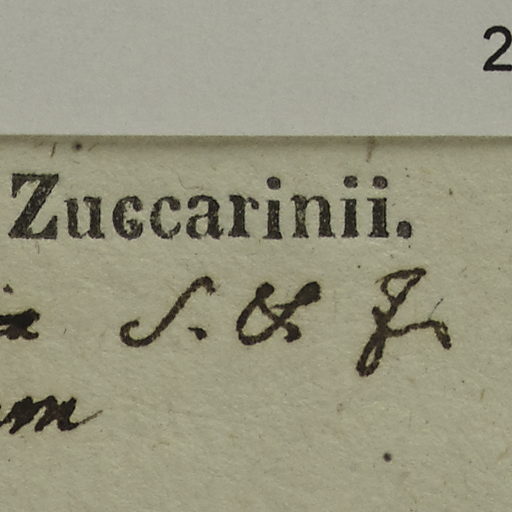 2
Zuccarinii.
S. & Z.